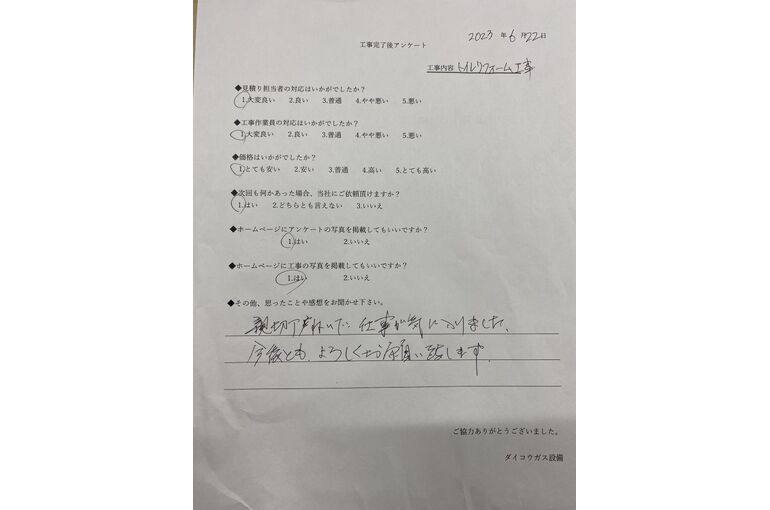 2023 年 6 月 22 日
工事完了後アンケート
工事内容 トイレリフォーム工事
◆見積り担当者の対応はいかがでしたか?
1.大変良い 2.良い 3.普通 4.やや悪い 5.悪い
◆工事作業員の対応はいかがでしたか?
1.大変良い 2.良い 3.普通 4.やや悪い 5.悪い
◆価格はいかがでしたか?
1.とても安い 2.安い 3.普通 4.高い 5.とても高い
◆次回も何かあった場合、当社にご依頼頂けますか?
1.はい 2.どちらとも言えない 3.いいえ
◆ホームページにアンケートの写真を掲載してもいいですか?
1.はい 2.いいえ
◆ホームページに工事の写真を掲載してもいいですか?
1.はい 2.いいえ
◆その他、思ったことや感想をお聞かせ下さい。
親切丁寧 仕事が気に入りました、
今後とも、よろしくお願い致します。
ご協力ありがとうございました。
ダイコウガス設備